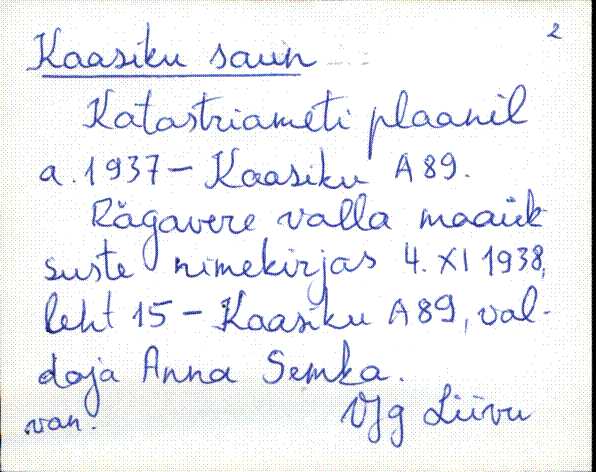 2
Kaasiku saun
Katastriameti plaanil
a. 1937 - Kaasiku A 89.
Rägavere valla maaük
suste nimekirjas 4. XI 1938,
leht 15 - Kaasiku A 89, val-
daja Anna Semka.
van. VJg Liivu